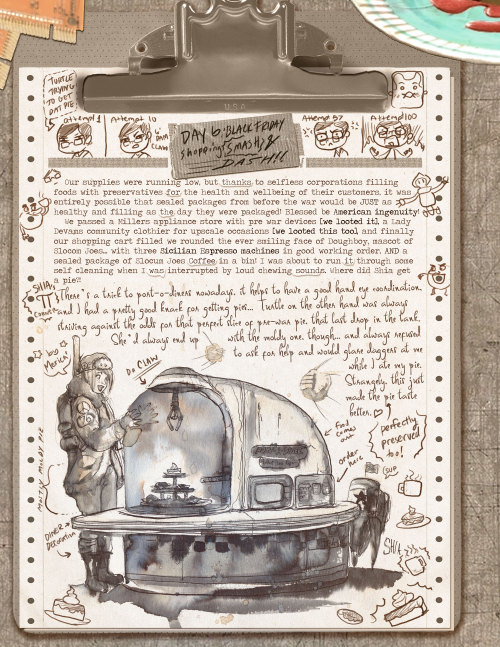 U.S.A
TURTLE
TRYING
TO GET
DAT PIE
Attempt 1
Attempt 10
DANG
CLAW
DAY 6. BLACK FRIDAY
shopping (SMASH) &
DASH!!
Attempt 100
Our supplies were running low, but thanks to selfless corporations filling
foods with preservatives for the health and wellbeing of their customers, it was
entirely possible that sealed packages from before the war would be JUST as
healthy and filling as the day they were packaged! Blessed be American ingenuity!
We passed a Millers appliance store with pre war devices [we looted it], a Lady
Devams community clothier for upscale occasions [we looted this too], and finally
our shopping cart filled we rounded the ever smiling face of Doughboy, mascot of
Slocum Joes... with three Sicilian Espresso machines in good working order. AND a
sealed package of Slocum Joes Coffee in a bin! I was about to run it through some
self cleaning when I was interrupted by loud chewing sounds. Where did Shia get
a pie?!
SHIA
There's a trick to port-o-diners nowadays, it helps to have a good hand eye coordination,
and I had a pretty good knack for getting pies... Turtle on the other hand was always
striving against the odds for that perfect slice of pre-war pie, that last drop in the tank.
She'd always end up with the moldy one, though... and always refused
to ask for help and would glare daggers at me
while I ate my pie.
Strangely, this just
made the pie taste
better.
by
Merica!
Da CLAW
perfectly
preserved
too!
food
comes
out
order
here
MOSTLY MOLDY PIE
DINER
Decoration
Cup
SHIA